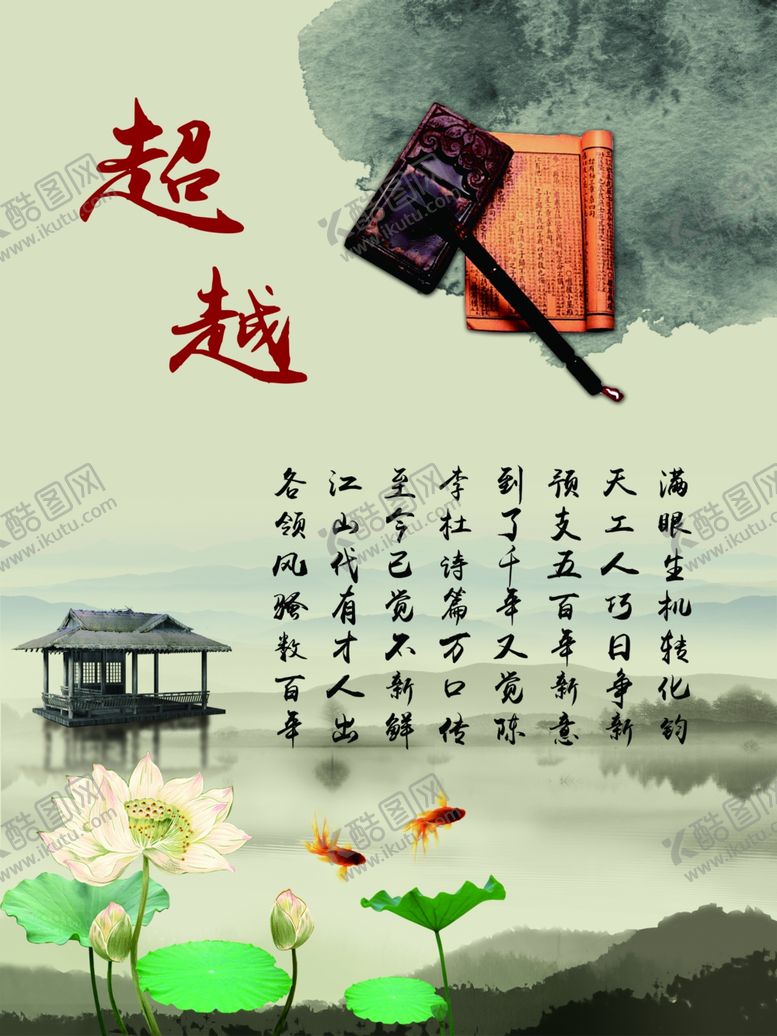 超
越
满眼生机转化钧
天工人巧日争新
预支五百年新意
到了千年又觉陈
李杜诗篇万口传
至今已觉不新鲜
江山代有才人出
各领风骚数百年
酷图网
www.ikutu.com